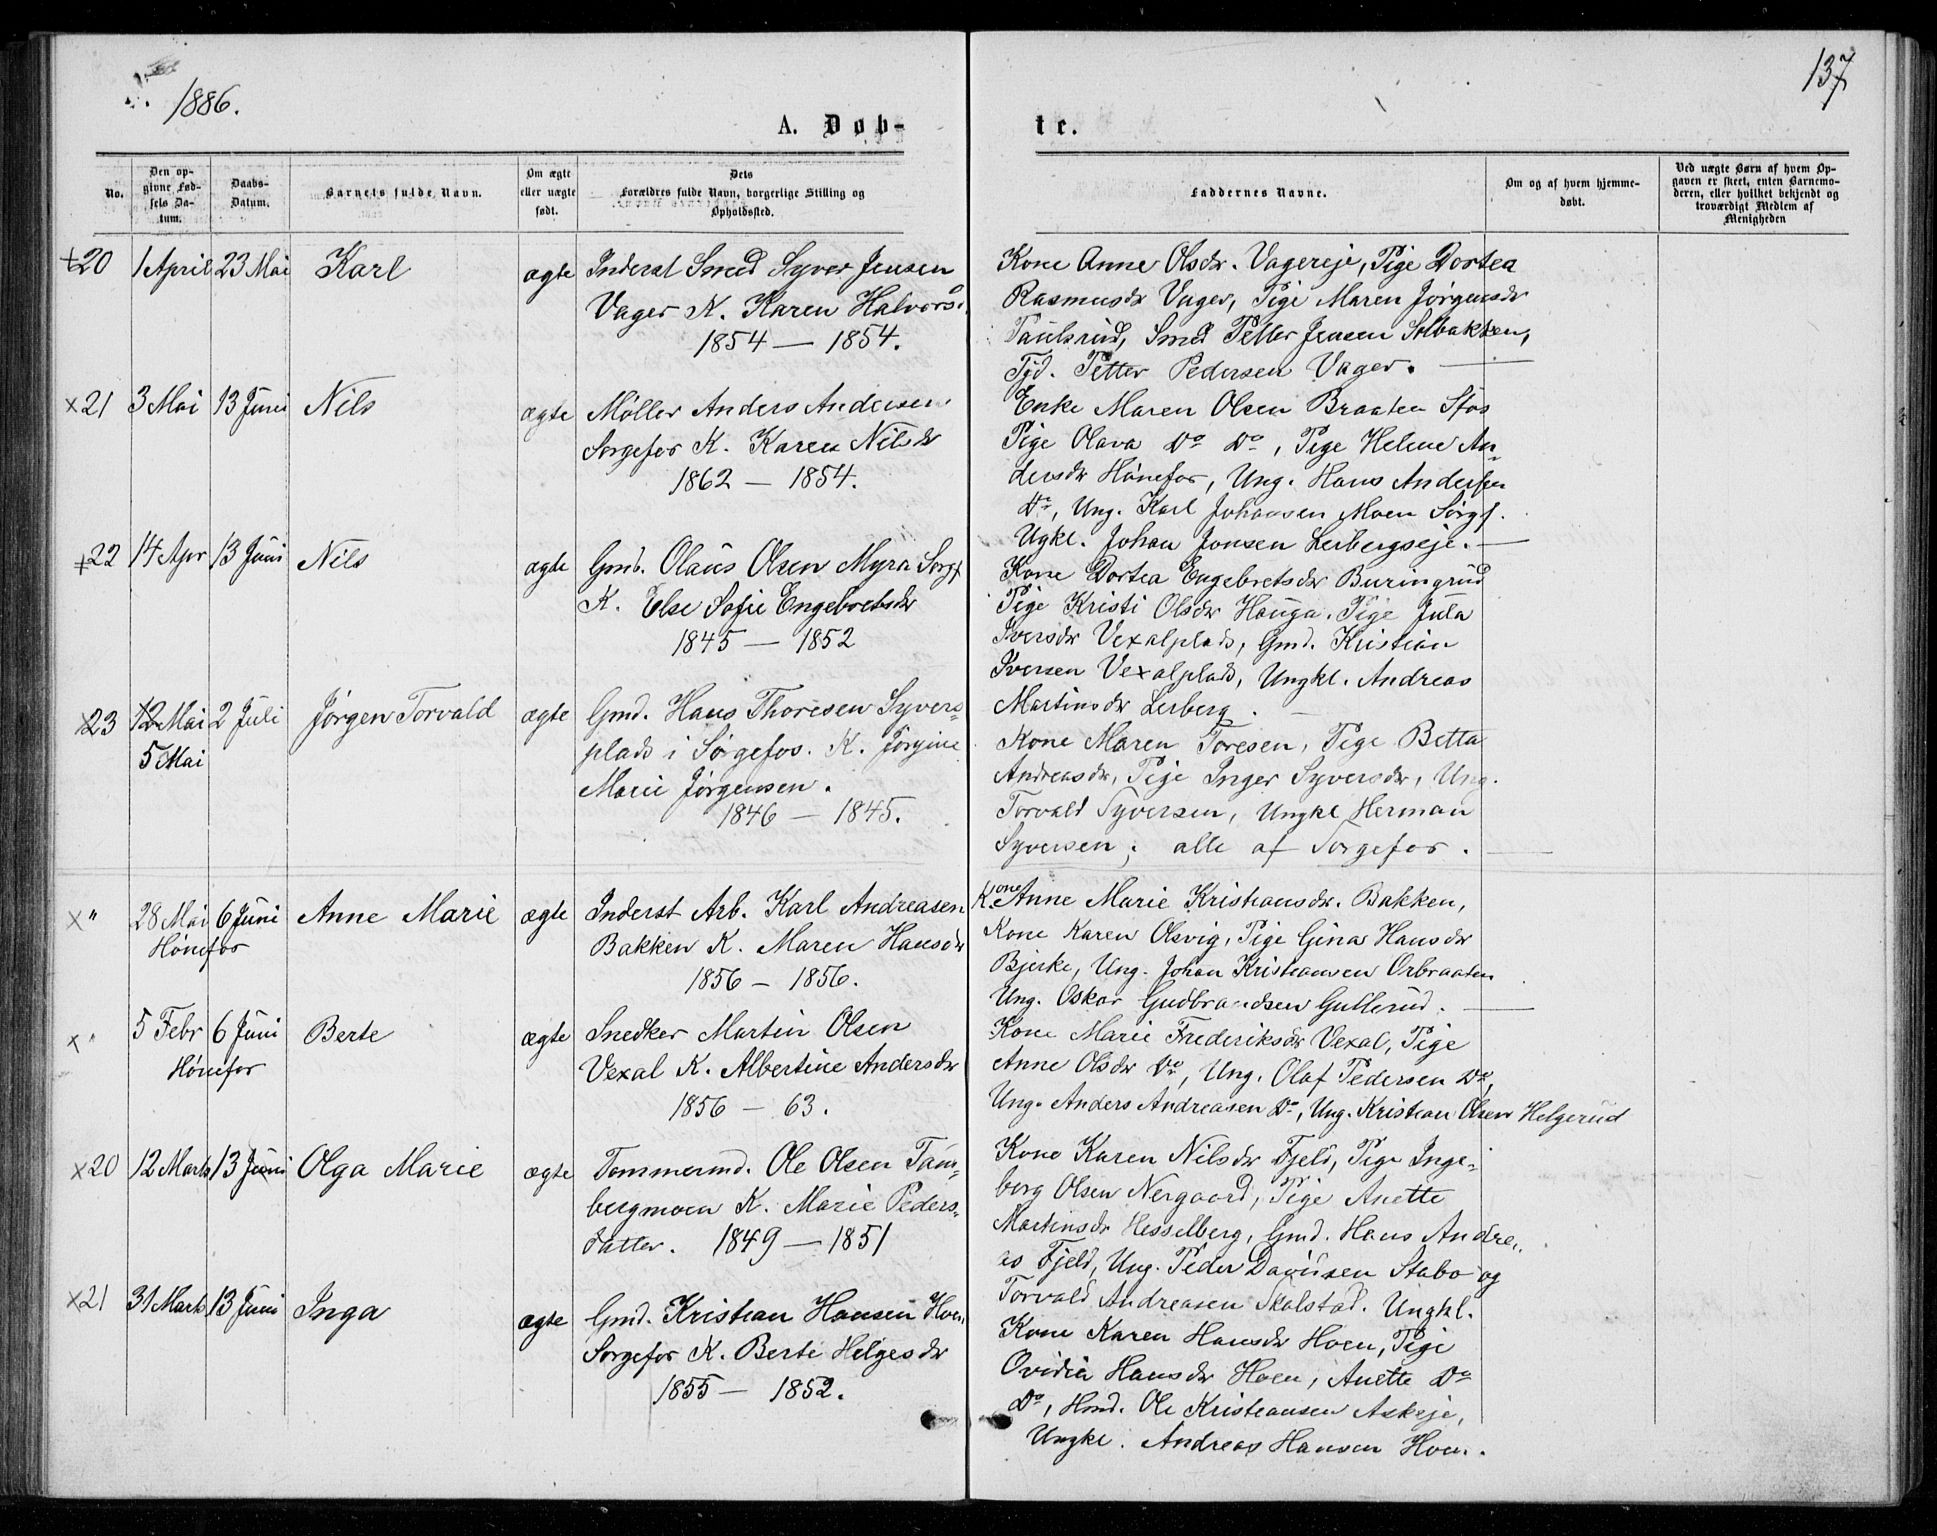 1886.
137
A. Døb-
te.
No.
Den op-
givne Fød-
sels Da-
tum.
Daabs-
Datum.
Barnets fulde Navn.
Om ægte
eller uægte
født.
Dets
Forældres fulde Navn, borgerlige Stilling og
Opholdssted.
Faddernes Navne.
Om og af hvem hjemme-
døbt.
Ved uægte Børn af hvem Op-
gaven er skeet, enten Barnemo-
deren, eller hvilket bekjendt og
troværdigt Medlem af
Menigheden
+20 1 April 23 Mai Karl ægte Inderst Smed Syver Jensen
Vager K. Karen Halvorsd.
1854 — 1854.
Kone Anne Olsdr. Vagereje, Pige Dortea
Rasmusdr Vager, Pige Maren Jørgensdr
Paulsrud, Smed Petter Jensen Solbakken,
Tjd. Petter Pedersen Vager. —
x21 3 Mai 13 Juni Nils ægte Møller Anders Andersen
Sørgefos K. Karen Nilsdr
1862 — 1854.
Enke Maren Olsen Braaten Sfos
Pige Olava Do Do, Pige Helene An-
dersdr Hønefos, Ung. Hans Andersen
Do, Ung. Karl Johansen Moen Sørgf.
Ugkl. Johan Jonsen Lerbergseje. —
+22 14 Apr 13 Juni Nils ægte Gmb. Olaus Olsen Myra Sorgf
K. Else Sofie Engebretsdr
1845 — 1852
Kone Dortea Engebretsdr Buringrud
Pige Kristi Olsdr Hauga. Pige Jula
Iversdr Vexalplads, Gmd. Kristian
Iversen Vexalplads, Ungkl. Andreas
Martinsdr Lerberg. —
x23 12 Mai 2 Juli Jørgen Torvald ægte Gmd. Hans Thoresen Syvers-
5 Mai
plads i Sørgefos. K. Jørgine
Marie Jørgensen.
1846 — 1845.
Kone Maren Toresen, Pige Betta
Andreasdr, Pige Inger Syversdr, Ung.
Torvald Syversen, Ungkl Herman
Syversen; alle af Sørgefos. —
x " 28 Mai 6 Juni Anne Marie ægte Inderst Arb. Karl Andreasen
Hønefos
Bakken K. Maren Hansdr
1856 — 1856.
Kone Anne Marie Kristiansdr. Bakken,
Kone Karen Olsvig, Pige Gina Hansdr
Bjerke, Ung. Johan Kristiansen Orbraaten
Ung. Oskar Gudbrandsen Gullerud. —
x " 5 Febr 6 Juni Berte ægte Snedker Martin Olsen
Hønefos
Vexal K. Albertine Andersdr
1856 — 63.
Kone Marie Frederiksdr Vexal, Pige
Anne Olsdr Do, Ung. Olaf Pedersen Do,
Ung. Anders Andreasen Do, Ung. Kristian Olsen Helgerud
x20 12 Marts 13 Juni Olga Marie ægte Tømmermd. Ole Olsen Tans-
bergmoen K. Marie Peders-
datter. 1849 — 1851
Kone Karen Nilsdr Fjeld, Pige Inge-
borg Olsen Nergaard, Pige Anette
Martinsdr Hesselberg, Gmd. Hans Andre-
as Fjeld, Ung. Peder Davidsen Stabo og
Torvald Andreasen Skolstad. Ungkl.
x21 31 Marts 13 Juni Inga ægte Gmd. Kristian Hansen Hoen
Sørgefos K. Berte Helgesdr
1855 — 1852.
Kone Karen Hansdr Hoen, Pige
Ovidia Hansdr Hoen, Anette Do
Do, Hmd. Ole Kristiansen Askeje,
Ungkl. Andreas Hansen Hoen.